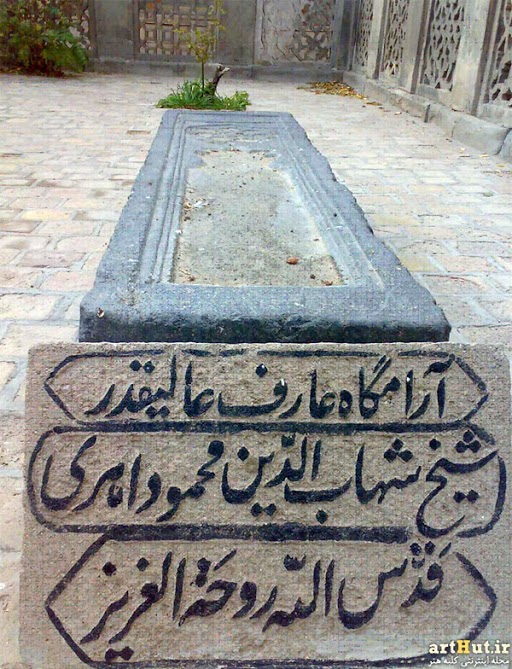 آرامگاه عارف عالیقدر
شیخ شهاب الدّین محمود اهری
قدّس اللّه روحة العزیز
artHut.ir
مجله اینترنتی کلبه هنر